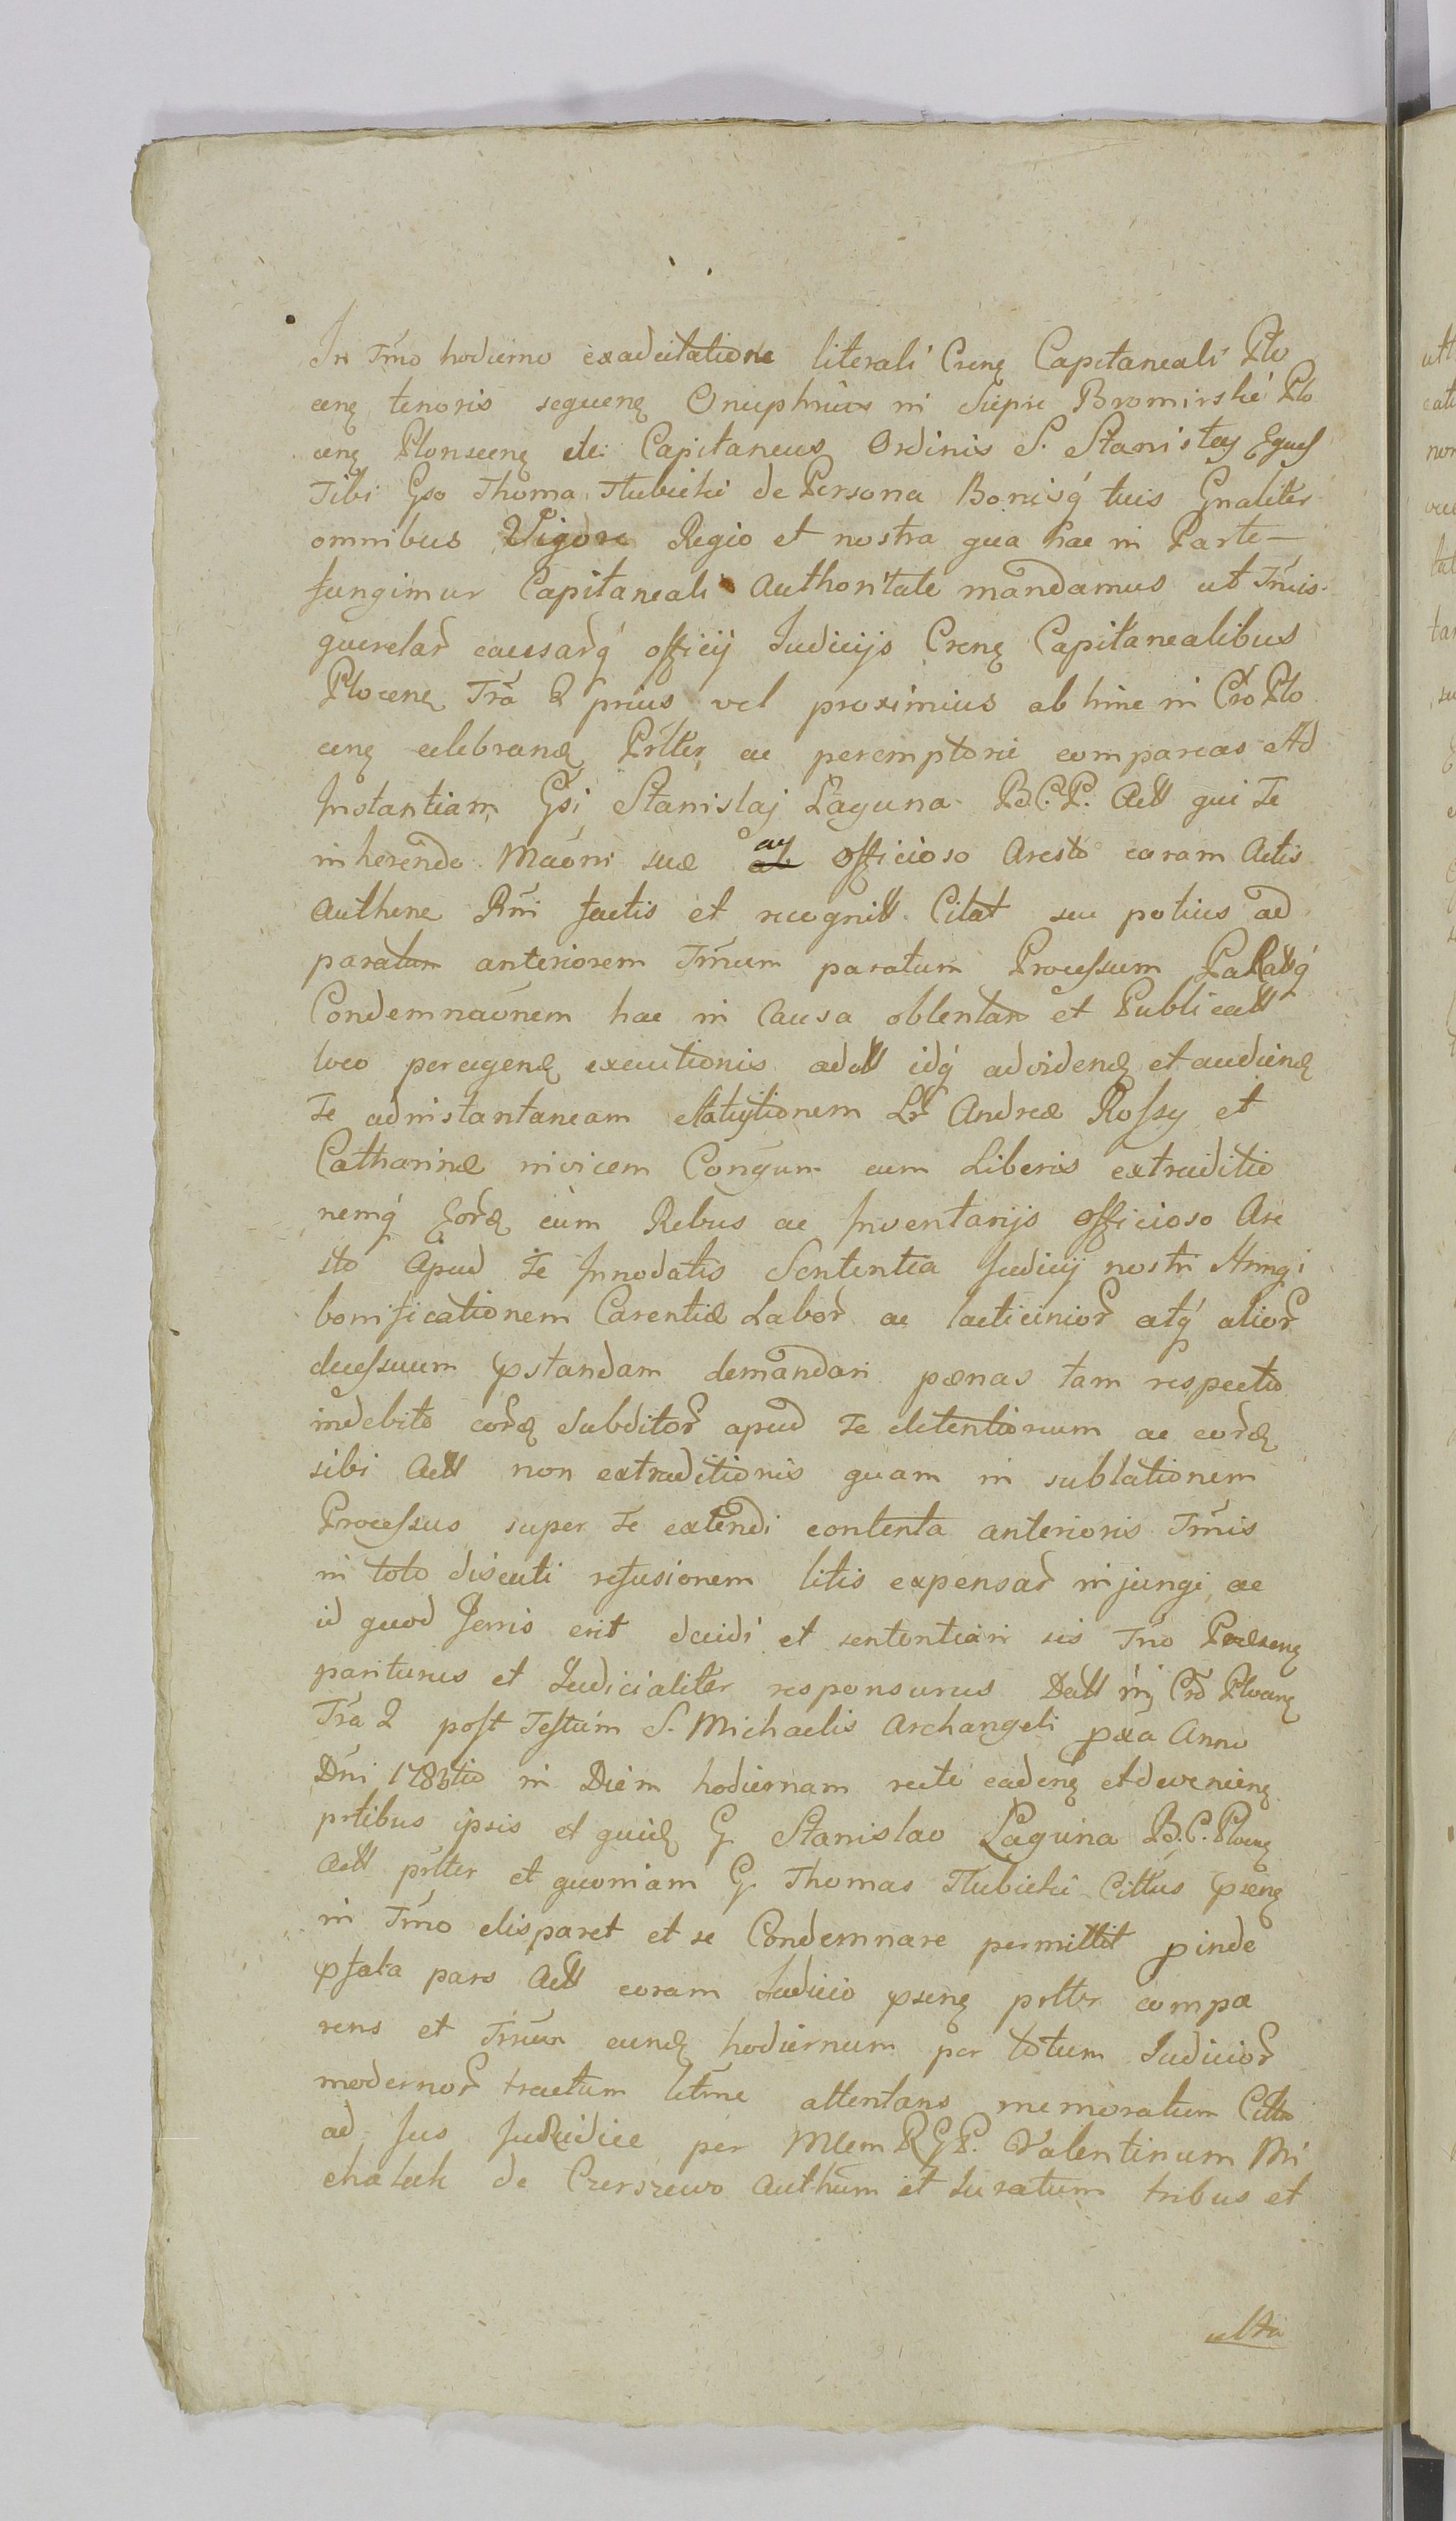 In Tr̃no hodierno exadcitatione literali Crenꝫ Capitaneali Plo
cenꝫ tenoris sequenꝫ Onuphrius in Siepre Bromirski Plo
cenꝫ Plonscenꝫ etc: Capitaneus Ordinis S. Stanislaj Eques
Tibi Gso Thoma Tłubicki de Persona Bonisq́ tuis Gnaliter
omnibus Vigore Regio et nostra qua hac in Parte—
fungimur Capitaneali Authoritate mandamus ut Tr̃nis
querelar̃ causarq́ officij Judicijs Crenꝫ Capitanealibus
Plocenꝫ Fr̃a 2 prius vel proximius ab hinc in Cr̃o Plo
cenꝫ celebranꝫ Pr̃ltter ac peremptorie compareas Ad
Instantiam Gsi Stanislaj Łaguna B.C.P. Actt qui Te
inherendo Maõni suæ ac officioso Aresto coram Actis
Authenꝫ Rñi factis et recognitt Citat seu potius ad
paratum anteriorem Tr̃num paratum Processum Paratq́
Condemnaõnem hac in Causa obtentam et Publicatt
loco peragenꝫ executionis adatt idq́ advidenꝫ et audienꝫ
Te adinstantaneam statuitionem Lr̃ Andreæ Rossy et
Catharinæ invicem Congum cum Liberis extraditio
nemq́ Eor̃ꝫ cum Rebus ac Inventarijs officioso Are
sto Apud Te Innodatis Sententia Judicij nostri Stringi
bonificationem Carentiæ Labor̃ ac lacticinior̃ atq́ alior̃
decessuum ꝓstandam demandari pænas tam respectio
indebito eor̃ꝫ Subditor̃ apud Te detentionum ac eor̃ꝫ
sibi Actt non extraditionis quam in sublationem
Processus super Te extendi contenta anterioris Tr̃nis
in toto discuti refusionem litis expensar̃ injungi, ac
id quod Juris erit decidi et sententiari sis Tr̃no Præsenꝫ
pariturus et Judicialiter responsurus Datt in Cr̃o Plocenꝫ
Fr̃a 2 post Festum S. Michaelis Archangeli ꝓxa Anno
Dñi 1783tio in Diem hodiernam recte cadenꝫ et devenienꝫ
prtibus ipsis et quidꝫ G. Stanislao Łaguna B.C. Plocenꝫ
Actt pr̃ltter et quoniam G. Thomas Tłubicki Cittus ꝓsenꝫ
in Tr̃no disparet et se Condemnare permittit proinde
ꝓfata pars Actt coram Judicio ꝓsenꝫ prltter compa
rens et Tr̃num eundꝫ hodiernum per totum Judicior̃
modernor̃ tractum ltme attentans memoratum Citto
ad Jus Juridice per Mlem R.G.P. Valentinum Mi
chałek de Czerszewo Authum et Juratum tribus et
ultra